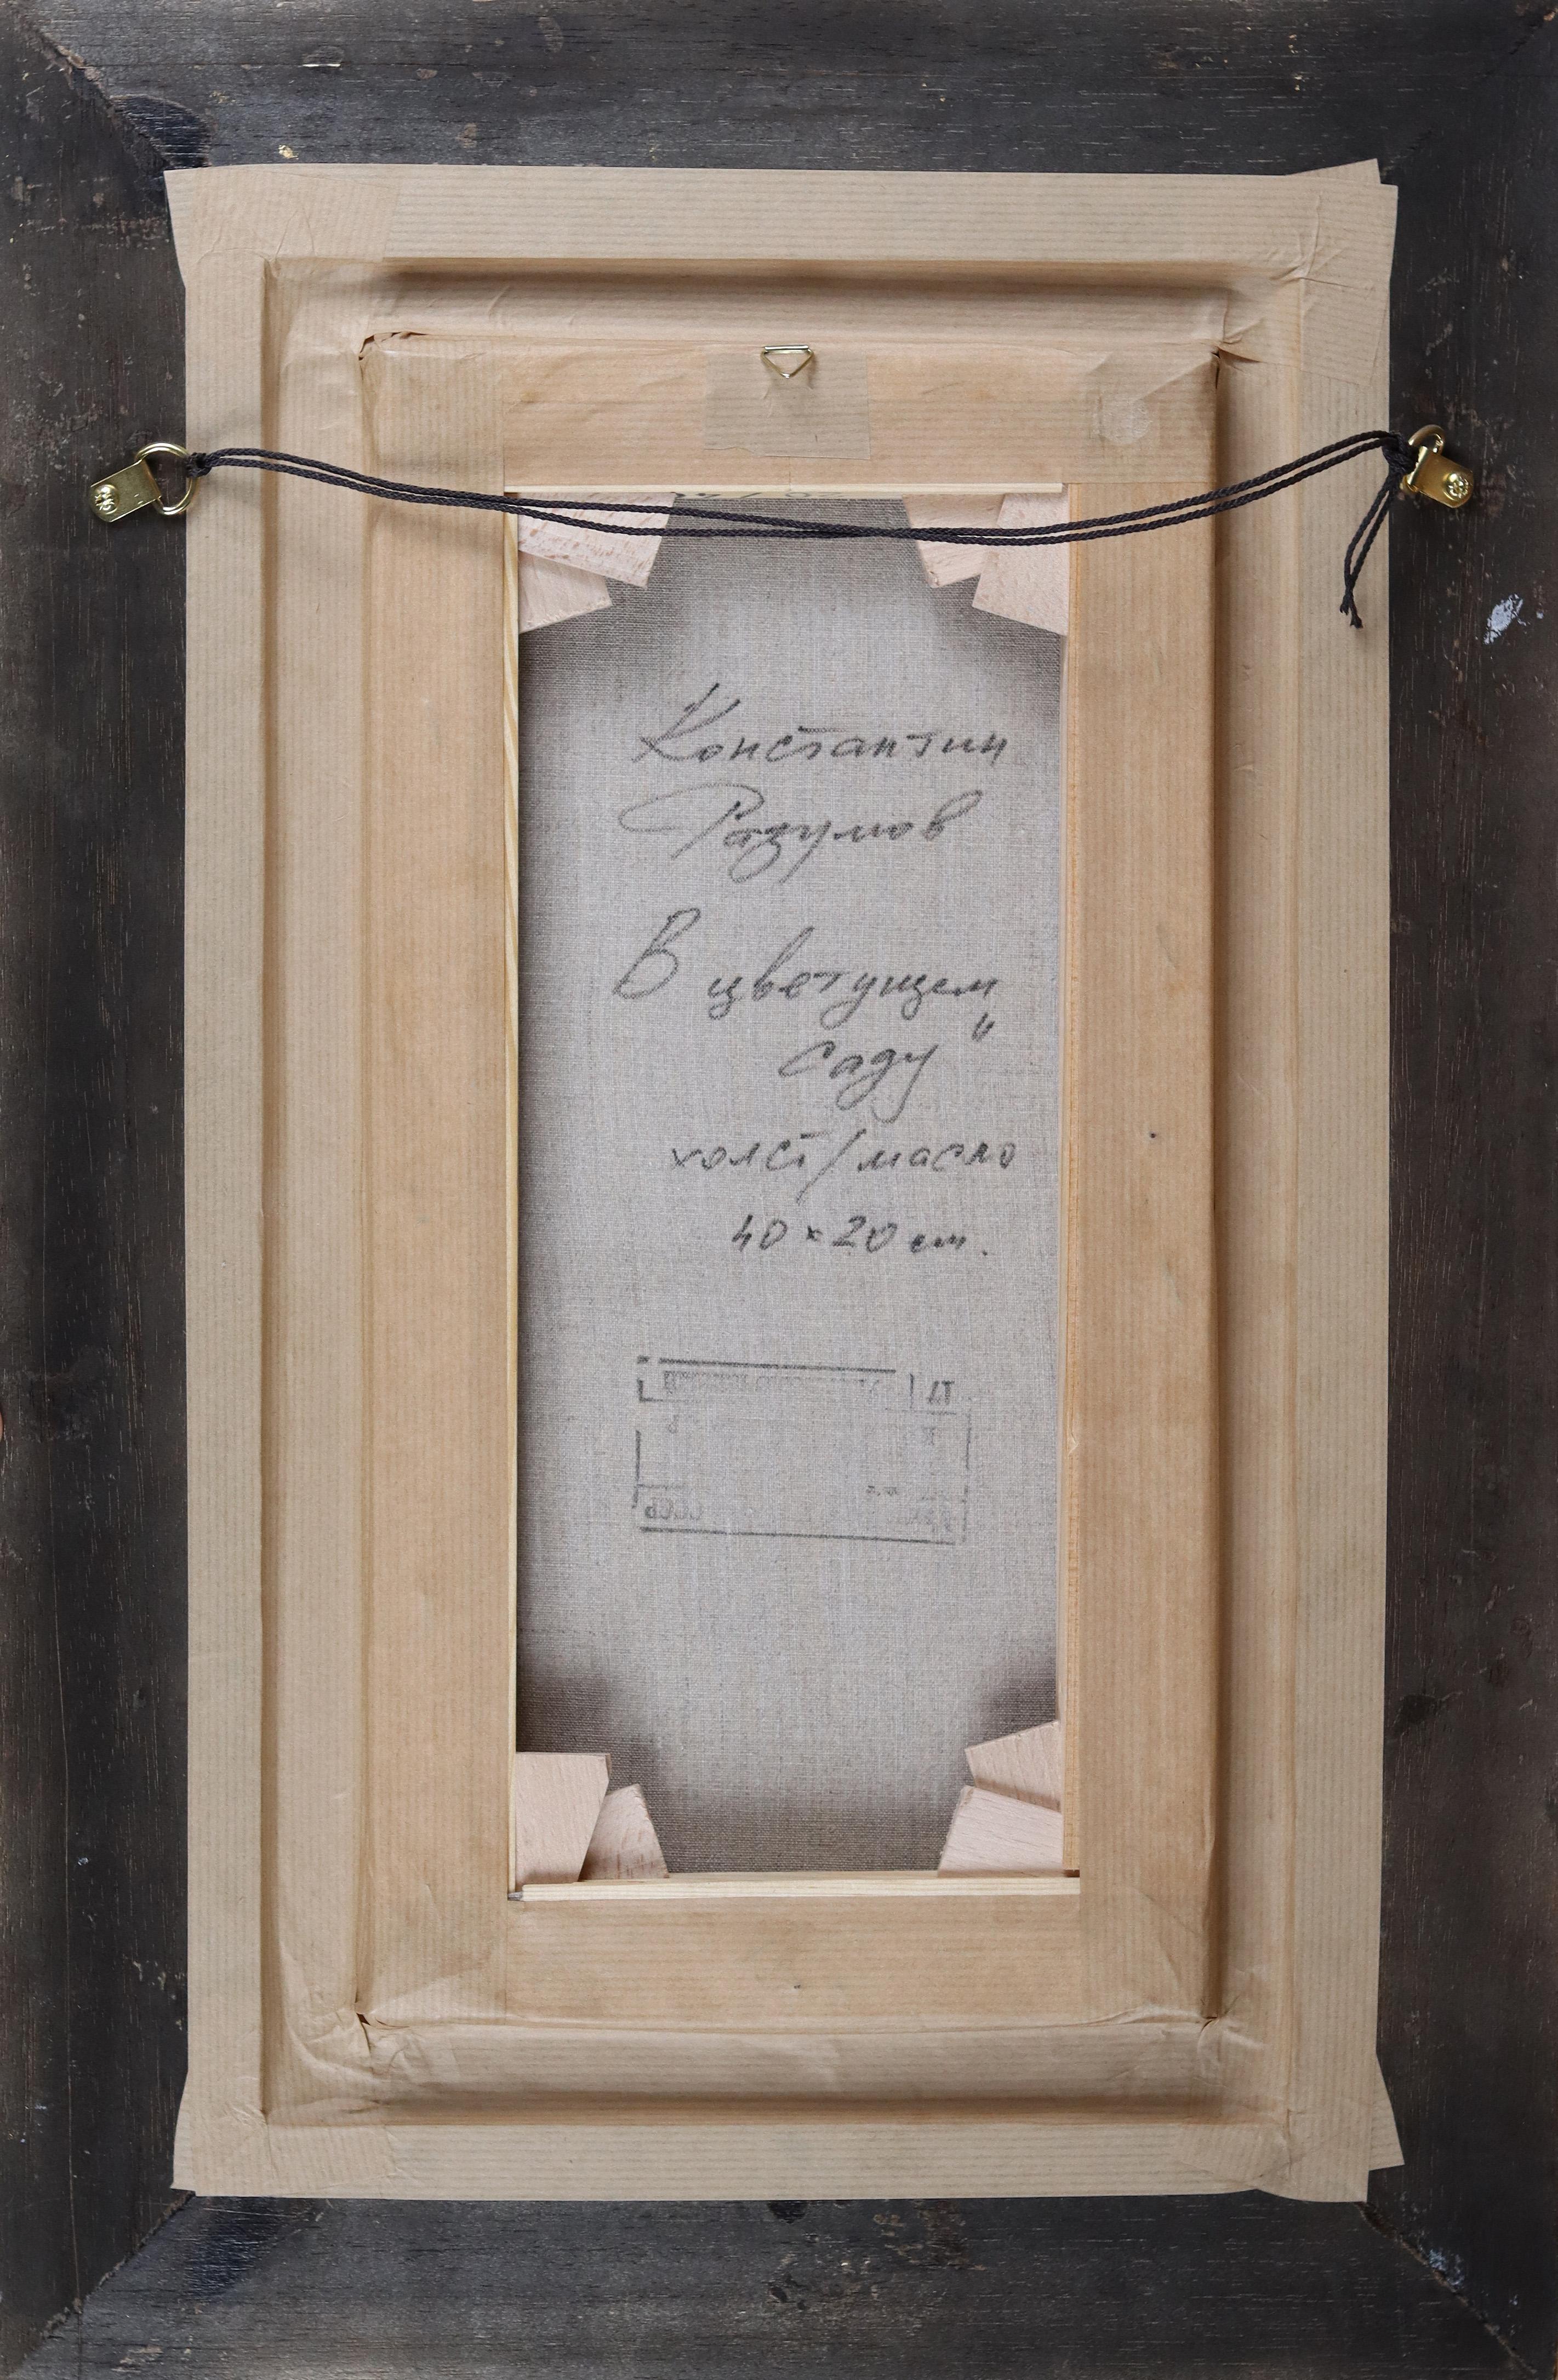 Константин
Разумов
В цветущем
саду"
холст/масло
40×20 cm.
СССР